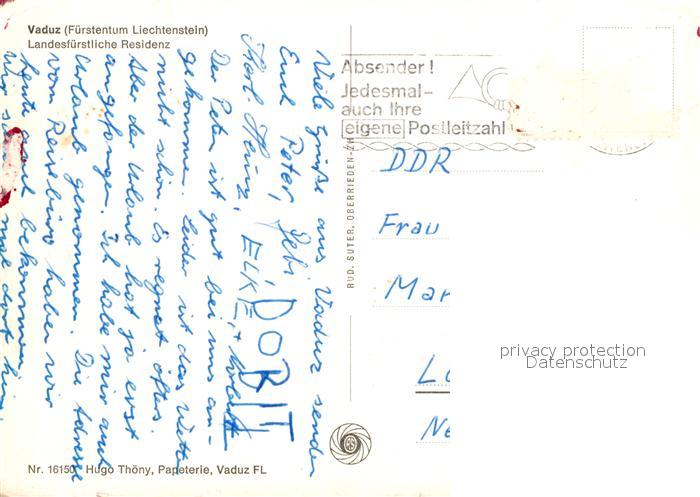 Vaduz (Fürstentum Liechtenstein)
Landesfürstliche Residenz
Viele Grüße aus Vaduz senden
Euch Peter, Gebi,
Karl-Heinz, ELKE, + DORIT
Der Peter ist gut bei uns an-
gekommen. Leider ist das Wetter
nicht schön. Es regnet öfters.
Aber der Urlaub hat ja erst
angefangen. Ich habe mir auch
Urlaub genommen. Die Adresse
vom Reisebüro haben wir
heute bekommen
Wir mal dort hin
Absender!
Jedesmal-
auch Ihre
eigene Postleitzahl
RUD. SUTER, OBERRIEDEN-ZH
DDR
Frau
Mar
L
Ne
privacy protection
Datenschutz
Nr. 16150 Hugo Thöny, Papeterie, Vaduz FL